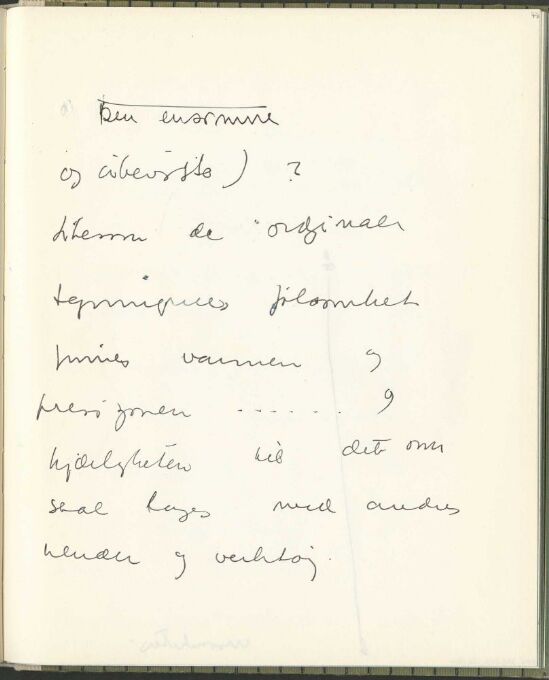 Den ensomme
og ubevisste) ?
liksom de originale
tegningenes følsomhet
finnes varmen og
presisjonen ....... og
kjærligheten til det om
skal lages med andres
hender og verktøy.